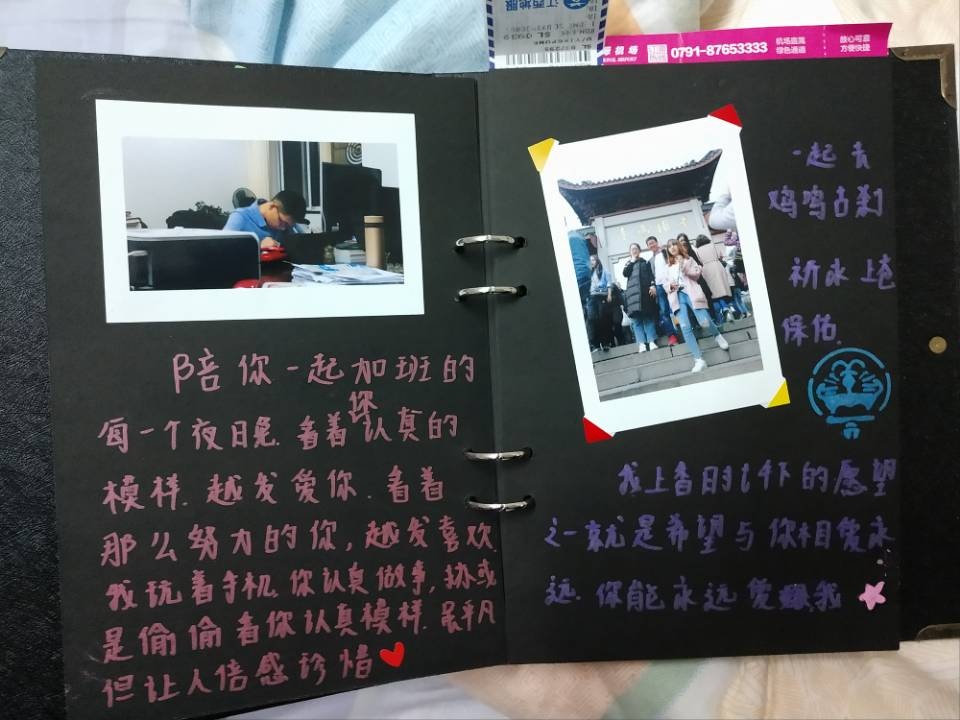 江西地服
0791-87653333
机场直属
绿色通道
放心可靠
方便快捷
陪你一起加班的
每一个夜晚.看着你认真的
模样.越发爱你.看着
那么努力的你,越发喜欢.
我玩着手机.你认真做事,抑或
是偷偷看你认真模样.虽平凡
但让人倍感珍惜
一起去
鸡鸣古刹
祈求上苍
保佑.
我上香时许下的愿望
之一就是希望与你相爱永
远.你能永远爱我